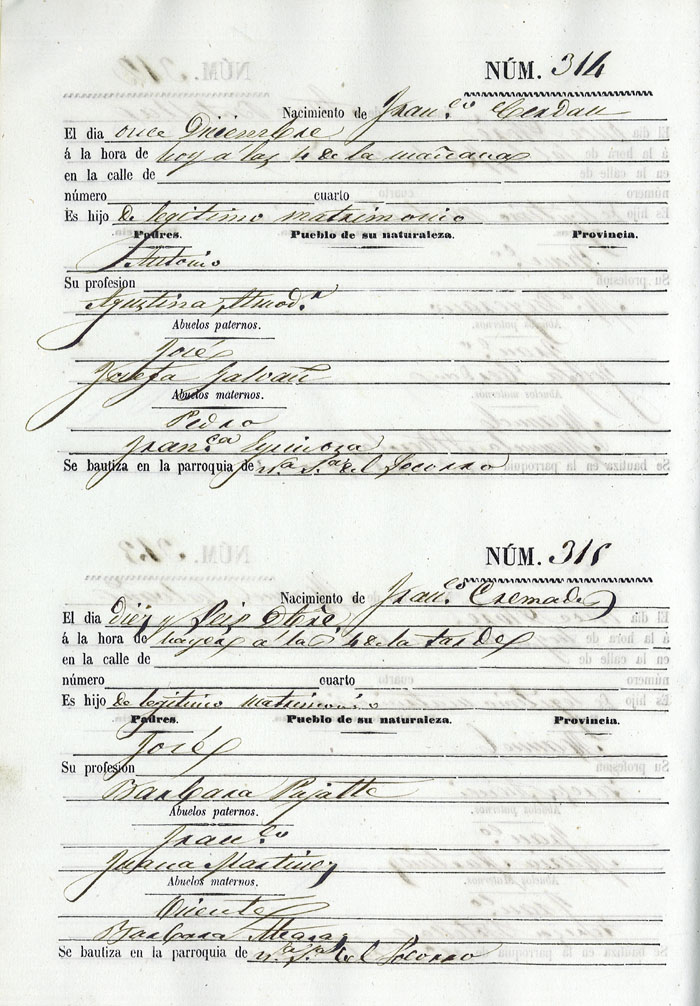 NÚM. 314
Nacimiento de Fran.co Cerdan
El dia once Diciembre
á la hora de hoy á las 4 de la mañana
en la calle de
número cuarto
Es hijo de legitimo matrimonio
Padres. Pueblo de su naturaleza. Provincia.
Antonio
Su profesion
Agustina Almod.r
Abuelos paternos.
José
Josefa Galvañ
Abuelos maternos.
Pedro
Fran.ca Espinosa
Se bautiza en la parroquia de N.a S.a del Socorro
NÚM. 315
Nacimiento de Fran.co Cremades
El dia Diez y Seis
á la hora de á las 4 de la tarde
en la calle de
número cuarto
Es hijo de legitimo matrimonio
Padres. Pueblo de su naturaleza. Provincia.
José
Su profesión
Barbara
Abuelos paternos.
Fran.co
Juana Martinez
Abuelos maternos.
Vicente
Barbara
Se bautiza en la parroquia de N.a S.a del Socorro